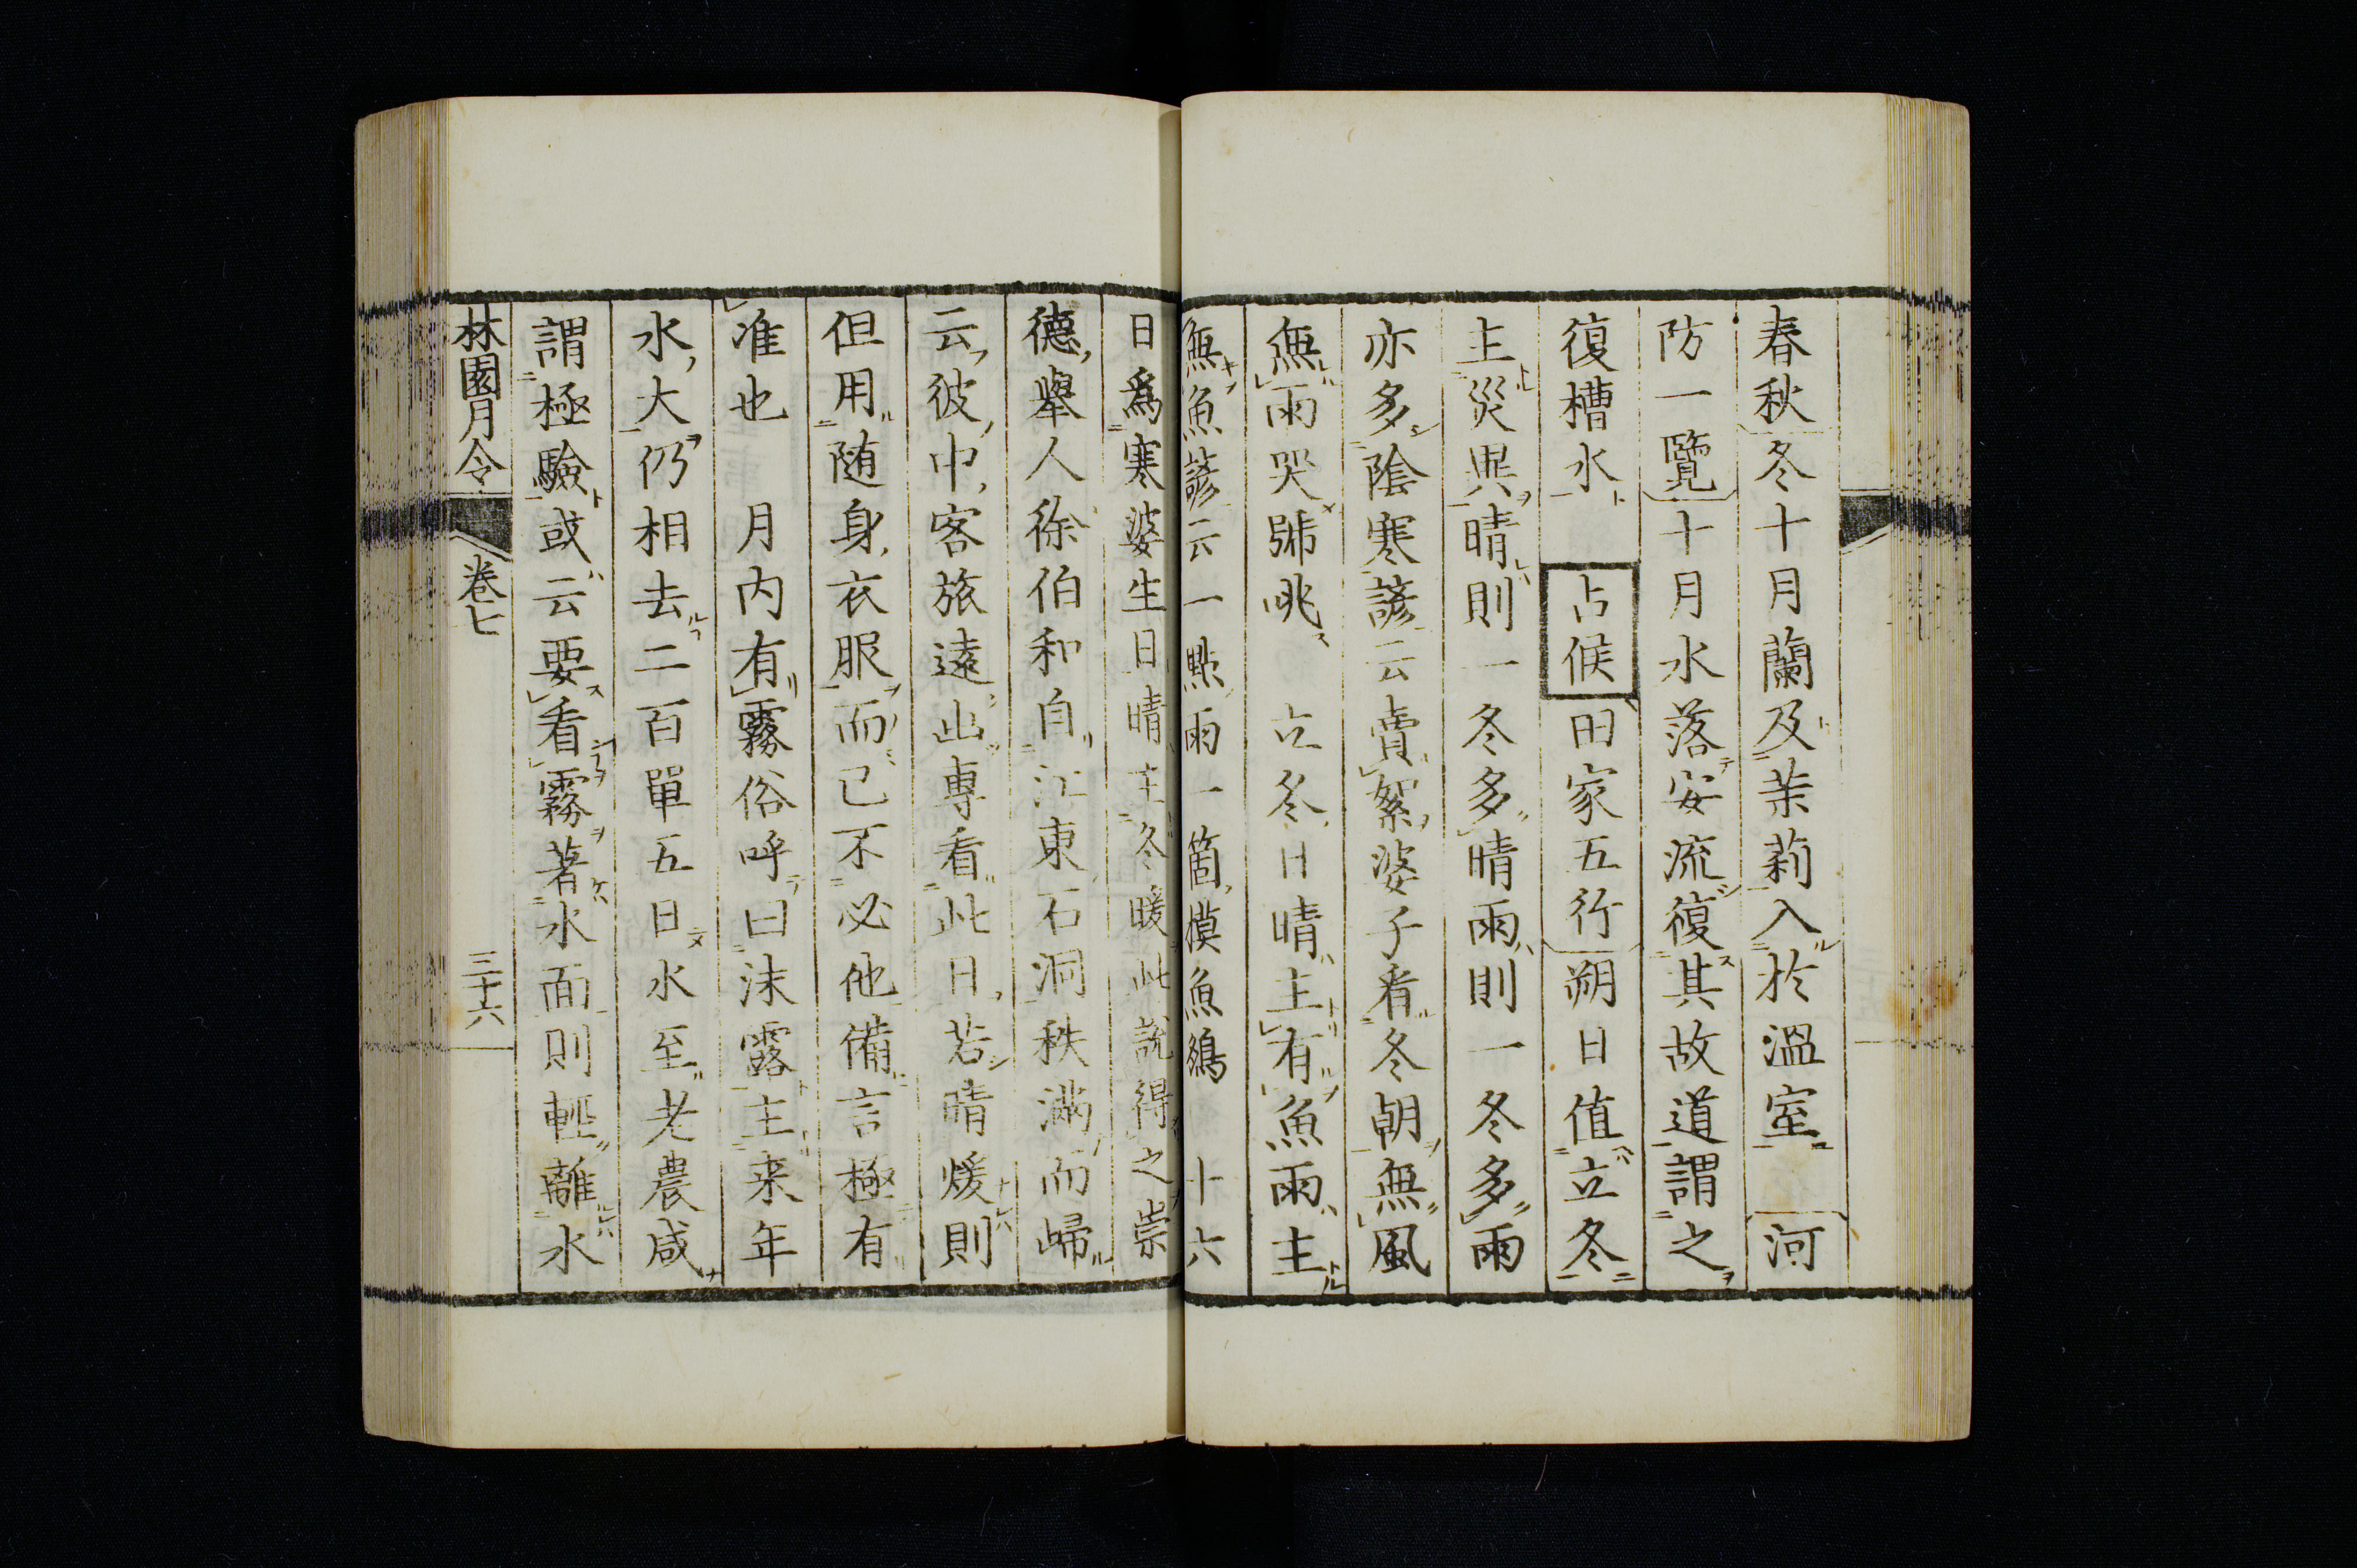 春秋冬十月蘭及茉莉入於溫室　河
防一覽十月水落安流復其故道謂之
復槽水　占候田家五行朔日值立冬
主災異晴則一冬多晴雨則一冬多雨
亦多陰寒諺云賣絮婆子看冬朝無風
無雨哭號咷　立冬日晴主有魚雨主
無魚諺云一點雨一箇摸魚鵝　十六
日爲寒婆生日晴主冬暖此說得之崇
德舉人徐伯和自江東石洞秩滿而歸
云彼中客旅遠出專看此日若晴煖則
但用随身衣服而已不必他備言極有
准也　月内有霧俗呼曰沫露主来年
水大仍相去二百單五日水至老農咸
謂極驗或云要看霧著水面則輕離水
林園月令　卷七　三十六